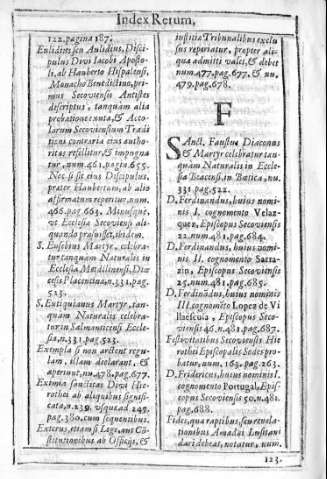 Index Rerum,
122. pagina 187.
Eulidius seu Aulidius, Disci-
pulus Divi Iacobi Aposto-
li, ab Hauberto Hispalensi,
Monacho Benedictino, pri-
mus Secoviensis Antistes
descriptus, tanquam alia
probatione nuta, & Acto
larum Secoviensium Tradi
tioni contraria eius autho-
ritas refellitur, & impugna
tur, num. 461. pagin. 655.
Nec si sit eius Discipulus,
præter Haubertum, ab alio
affirmatum reperitur, num.
466. pag. 663. Minusque,
ut Ecclesia Secoviensi ali-
quando præfuisset, ibidem.
S. Eusebius Martyr, celebra
tur tanquam Naturalis in
Ecclesia Metilinensi, Diœ
cesis Placentinæ, n. 331. pag.
523.
S. Eutiquianus Martyr, tan-
quam Naturalis celebra-
tur in Salmanticensi Eccle-
sia, n. 331. pag. 523.
Exempla si non ardent regu-
lam, illam declarant, &
aperiunt, nu. 478. pag. 677.
Eximia sanctitas Divi Hie-
rothei ab aliquibus signifi-
cata, n. 239. usque ad 245.
pag. 380. cum sequentibus.
Exterus, etsi si Lege, aut Co
stitutionibus ab Officijs, &
iustitia Tribunalibus exclu
sus reperiatur, propter ali-
qua admitti valet, & debet
num. 477. pag. 677. & nu.
479. pag. 678.
F
Sanct. Faustus Diaconus
& Martyr celebratur tan
quam Naturalis in Eccle-
sia Beacensi, in Bætica, nu.
331. pag. 522.
D. Ferdinandus, huius nomi-
nis I. cognomento Velaz-
quez, Episcopus Secoviensis
22. num. 481. pag. 684.
D. Ferdinandus, huius nomi-
nis II. cognomento Sarra-
zin, Episcopus Secoviensis
25. num. 481. pag. 685.
D. Ferdinãdus, huius nominis
III. cognomẽto Lopez de Vi
llaescusa, Episcopus Seco-
viensis 46. n. 481. pag. 687.
Festivitatibus Secoviensis Hie
rothei Episcopalis Sedes pro-
batur, num. 163. pag. 263.
D. Fridericus, huius nominis I.
cognomento Portugal, Epis-
copus Secoviensis 50. n. 481.
pag. 688.
Fides, qua raptibus, seu revela-
tionibus Amadæi Lusitani
dari debeat, notatur, num.
123.